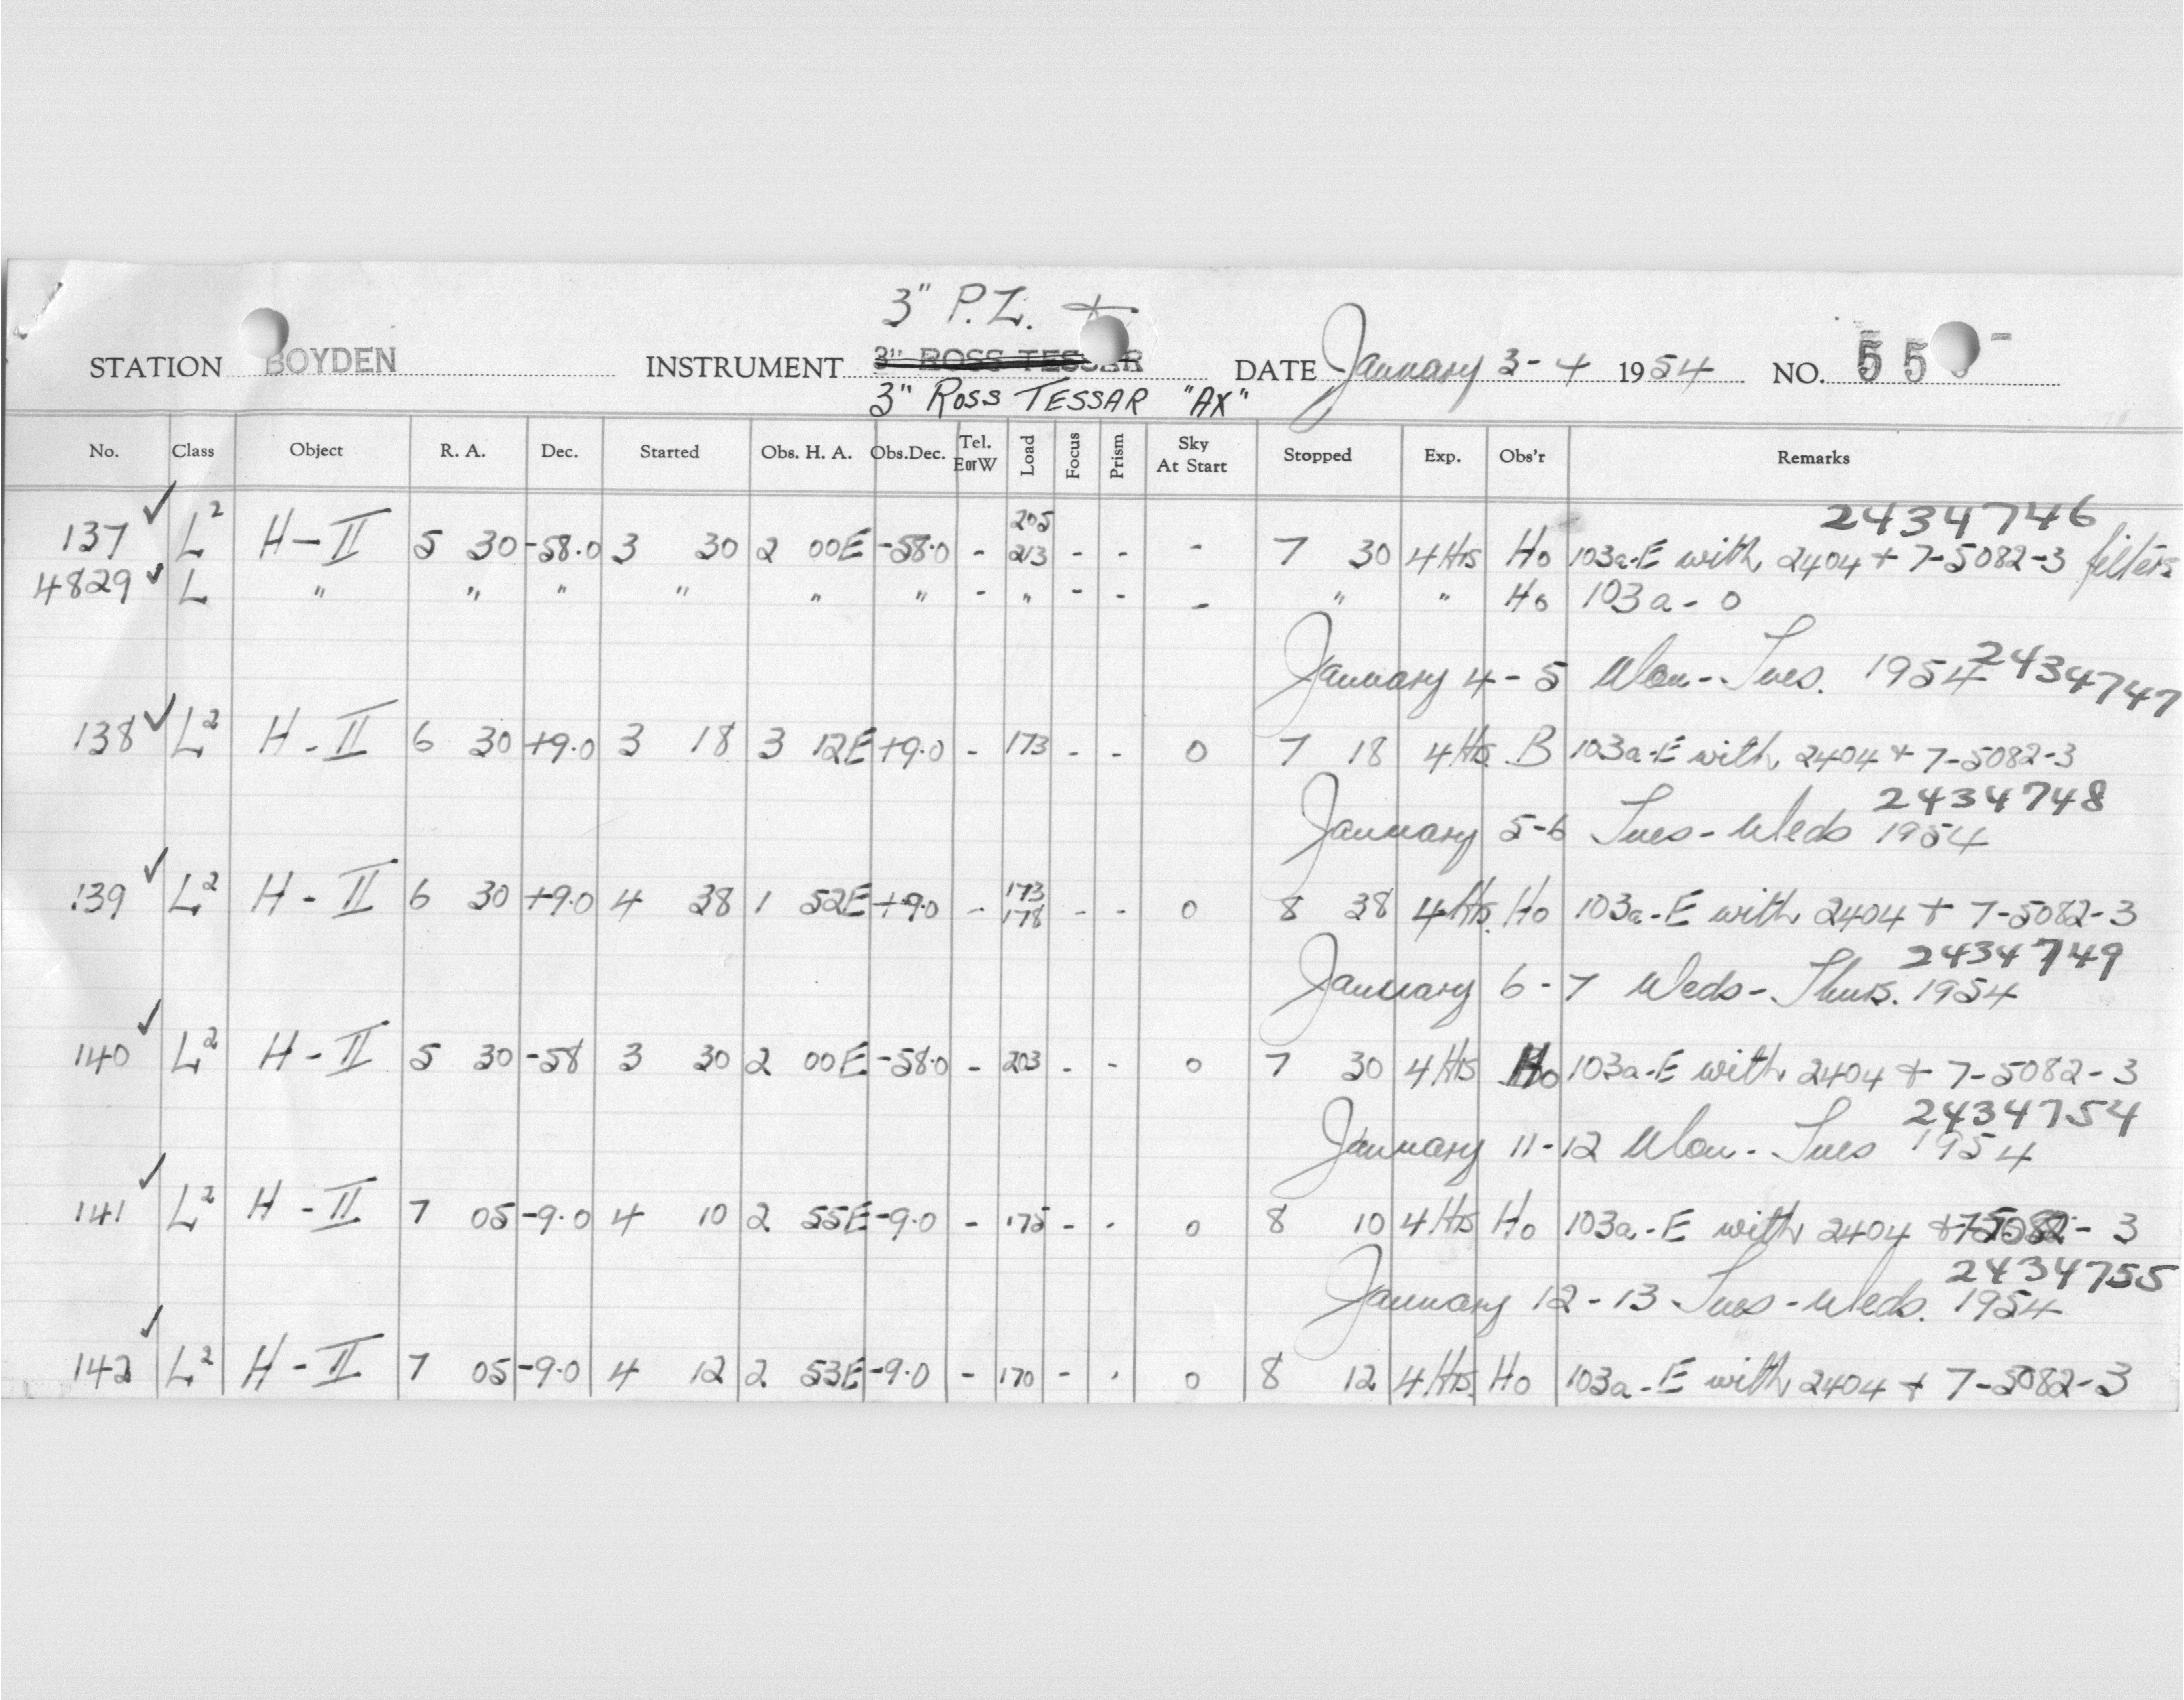 3" P.Z. +
STATION BOYDEN INSTRUMENT 3" ROSS TESSAR DATE January 3-4 1954 NO. 55 -
3" ROSS TESSAR "AX"
No. Class Object R. A. Dec. Started Obs. H. A. Obs.Dec. Tel. EorW Load Focus Prism Sky At Start Stopped Exp. Obs'r Remarks
2434746
137 ✓ L² H-II 5 30 -58.0 3 30 2 00E -58.0 - 205 213 - - - 7 30 4Hrs Ho 103a-E with 2404 + 7-5082-3 filters
4829 ✓ L " " " " " " - " - - - " " Ho 103a-O
January 4-5 Mon-Tues. 1954 2434747
138 ✓ L² H-II 6 30 +9.0 3 18 3 12E +9.0 - 173 - - 0 7 18 4Hrs. B 103a-E with 2404 + 7-5082-3
2434748
January 5-6 Tues-Weds 1954
139 ✓ L² H-II 6 30 +9.0 4 38 1 52E +9.0 - 173 178 - - 0 8 38 4Hrs. Ho 103a-E with 2404 + 7-5082-3
2434749
January 6-7 Weds-Thurs. 1954
140 ✓ L² H-II 5 30 -58 3 30 2 00E -58.0 - 203 - - 0 7 30 4Hrs Ho 103a-E with 2404 + 7-5082-3
2434754
January 11-12 Mon-Tues 1954
141 ✓ L² H-II 7 05 -9.0 4 10 2 55E -9.0 - 175 - - 0 8 10 4Hrs Ho 103a-E with 2404 + 7-5082-3
2434755
January 12-13 Tues-Weds. 1954
142 ✓ L² H-II 7 05 -9.0 4 12 2 53E -9.0 - 170 - - 0 8 12 4Hrs. Ho 103a-E with 2404 + 7-5082-3